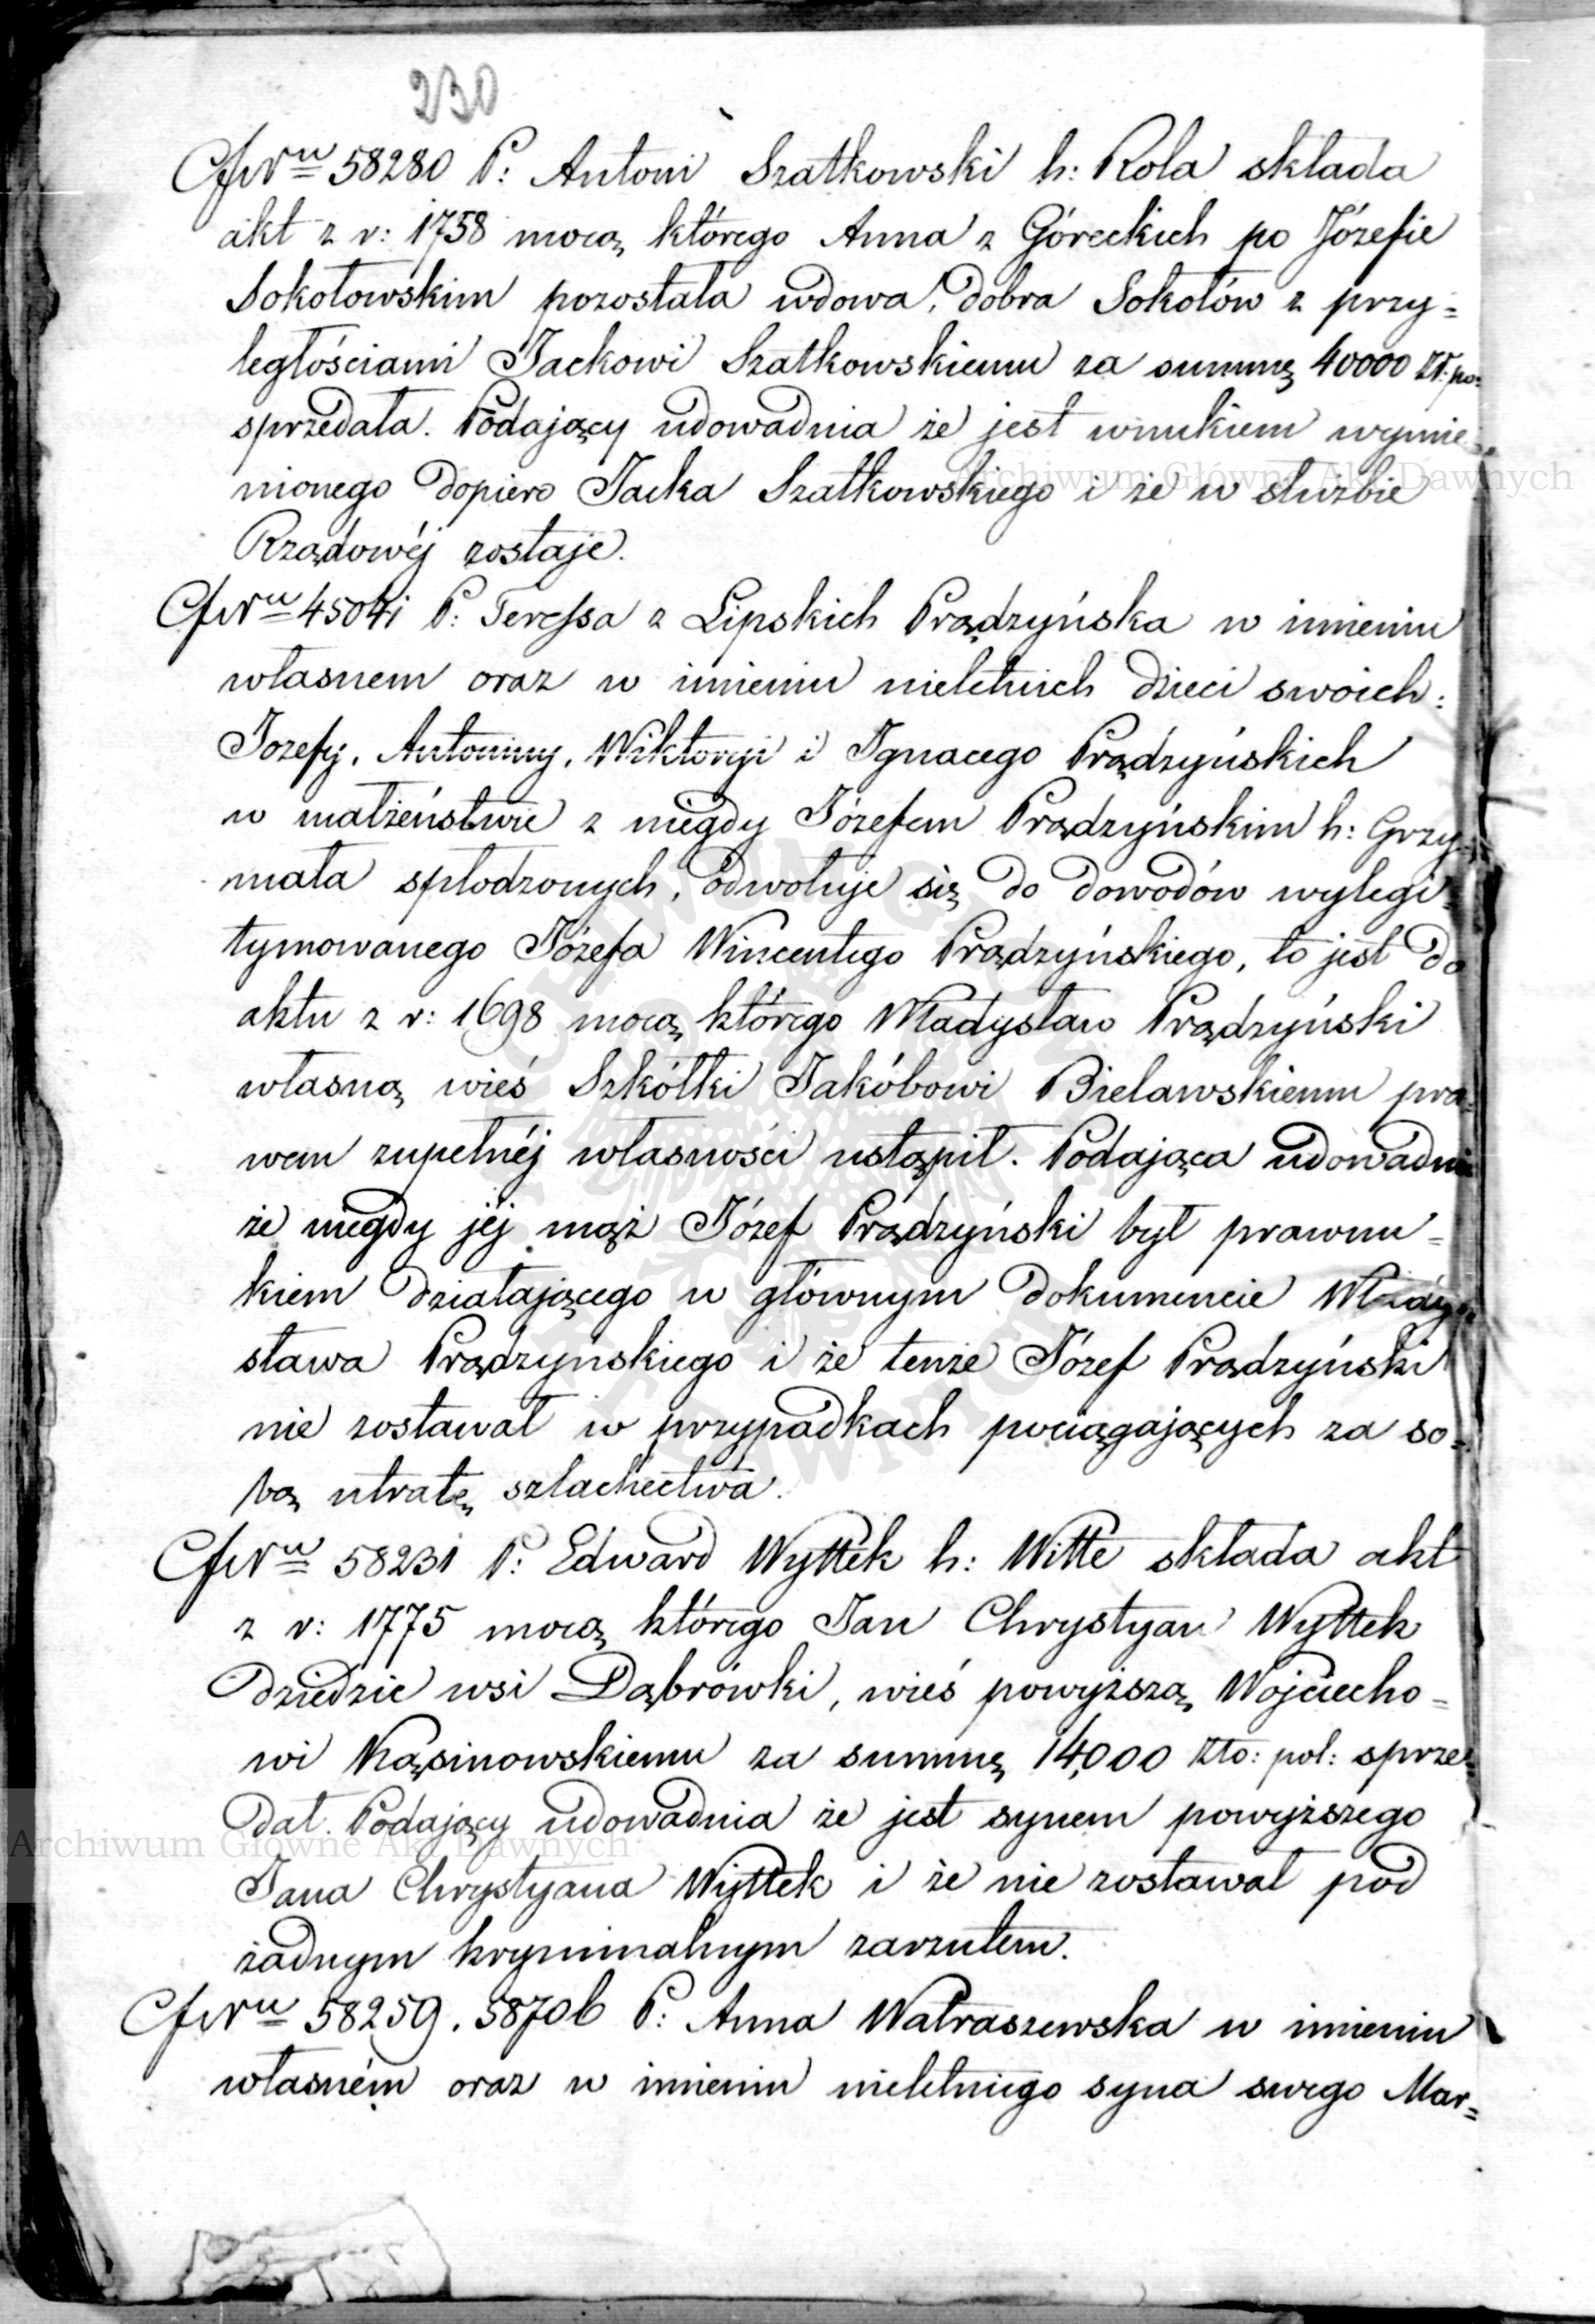 230
Cf Nru 58280 P: Antoni Szatkowski h: Rola składa
akt z r: 1758 mocą którego Anna z Góreckich po Józefie
Sokołowskim pozostała wdowa, dobra Sokołów z przy=
ległościami Jackowi Szatkowskiemu za summę 40000 Zł: po:
sprzedała. Podający udowadnia że jest wnukiem wymie=
nionego dopiero Jacka Szatkowskiego i że w służbie
Rządowéj zostaje.
Cf Nru 45041 P: Teressa z Lipskich Prądzyńska w imieniu
własnem oraz w imieniu nieletnich dzieci swoich:
Jozefy, Antoniny, Wiktoryi i Ignacego Prądzyńskich
w małżeństwie z niegdy Józefem Prądzyńskim h: Grzy=
mała spłodzonych, odwołuje się do dowodów wylegi=
tymowanego Józefa Wincentego Prądzyńskiego, to jest do
aktu z r: 1698 mocą którego Władysław Prądzyński
własną wieś Szkółki Jakóbowi Bielawskiemu pra=
wem zupełnéj własności ustąpił. Podająca udowadnia
że niegdy jéj mąż Józef Prądzyński był prawnu=
kiem działającego w głównym dokumencie Włady=
sława Prądzyńskiego i że tenże Józef Prądzyński
nie zostawał w przypadkach pociągających za so=
bą utratę szlachectwa.
Cf Nru 58231 P: Edward Wyttek h: Witte składa akt
z r: 1775 mocą którego Jan Chrystyan Wyttek
dziedzic wsi Dąbrówki, wieś powyższą Wojciecho=
wi Kąsinowskiemu za summę 14,000 Zło: pol: sprze=
dał. Podający udowadnia że jest synem powyższego
Jana Chrystyana Wyttek i że nie zostawał pod
żadnym kryminalnym zarzutem.
Cf Nru 58259. 58706 P: Anna Watraszewska w imieniu
własném oraz w imieniu nieletniego syna swego Mar=
Archiwum Główne Akt Dawnych
Archiwum Główne Akt Dawnych